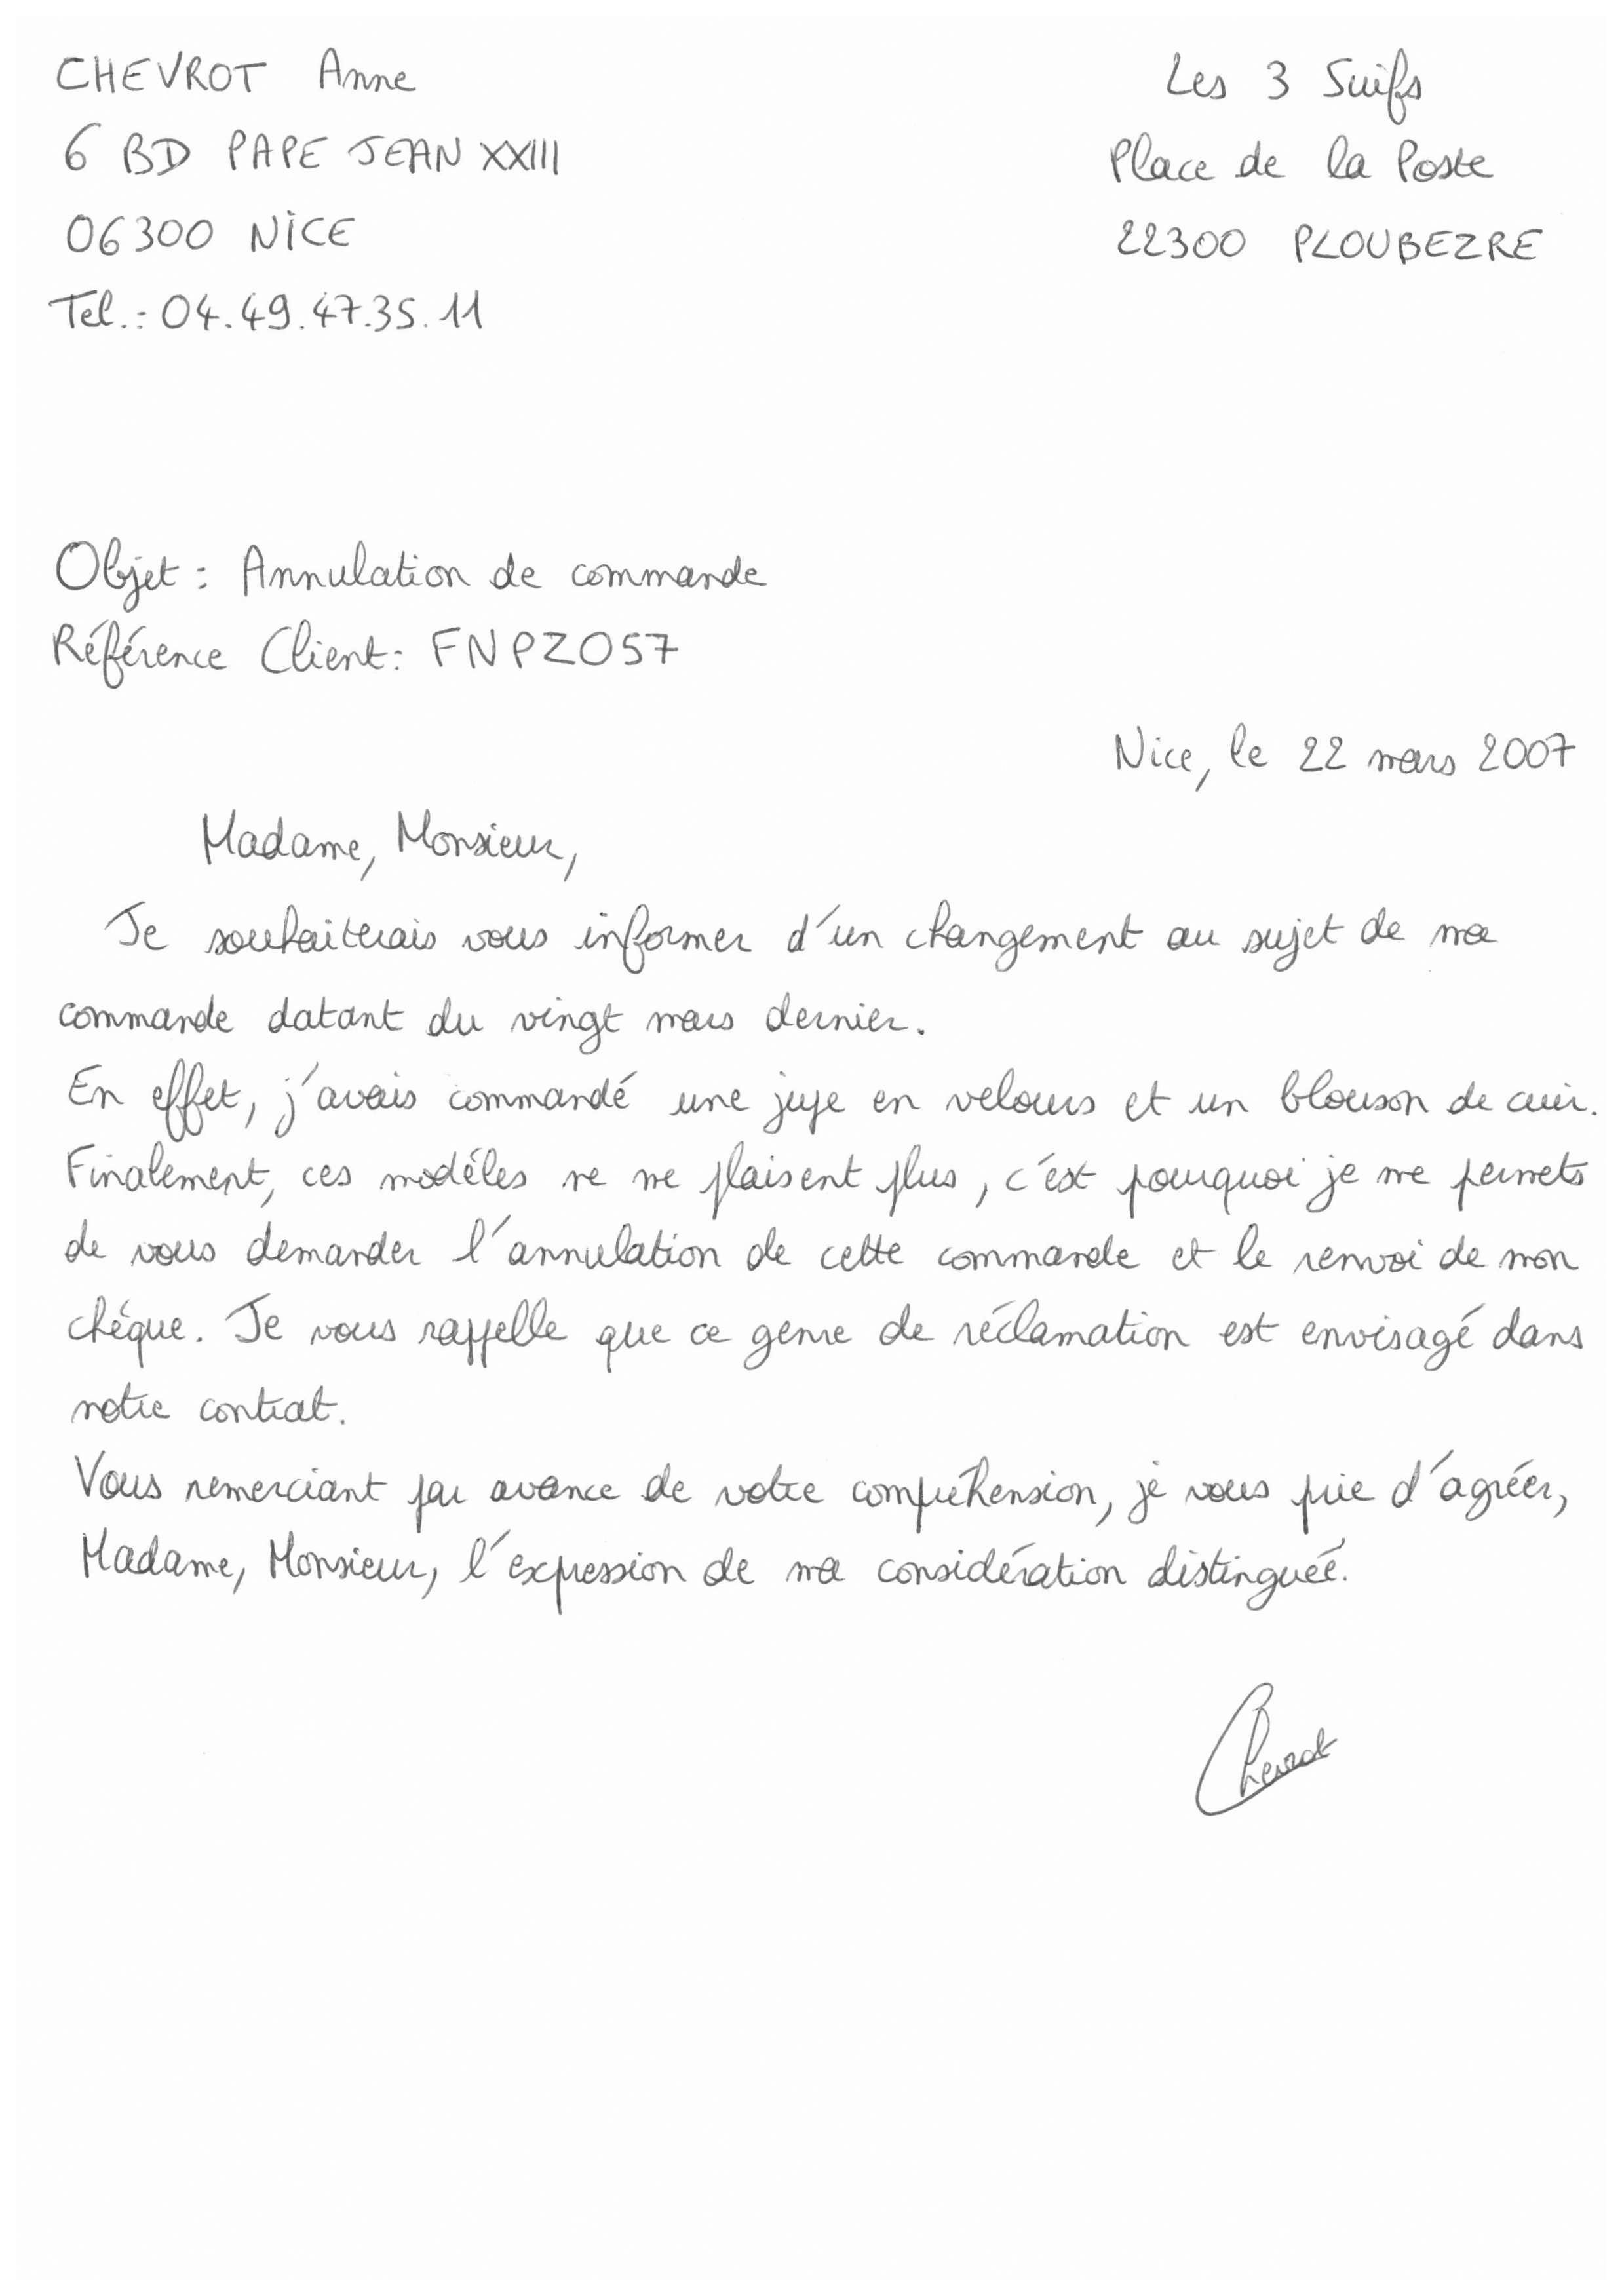 CHEVROT Anne
6 BD PAPE JEAN XXIII
06300 NICE
Tel.: 04.49.47.35.11
Les 3 Suifs
Place de la Poste
22300 PLOUBEZRE
Objet : Annulation de commande
Référence Client : FNPZO57
Nice, le 22 mars 2007
Madame, Monsieur,
Je souhaiterais vous informer d'un changement au sujet de ma
commande datant du vingt mars dernier.
En effet, j'avais commandé une jupe en velours et un blouson de cuir.
Finalement, ces modèles ne me plaisent plus, c'est pourquoi je me permets
de vous demander l'annulation de cette commande et le renvoi de mon
chèque. Je vous rappelle que ce genre de réclamation est envisagé dans
notre contrat.
Vous remerciant par avance de votre compréhension, je vous prie d'agréer,
Madame, Monsieur, l'expression de ma considération distinguée.
Chevrot